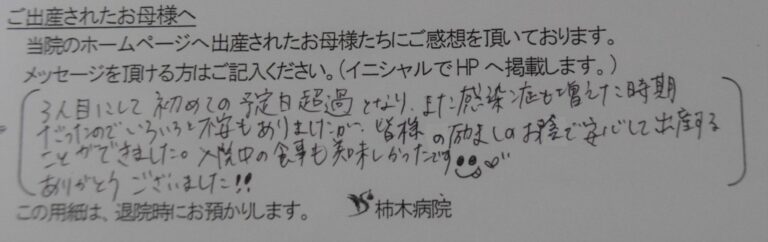 ご出産されたお母様へ
当院のホームページへ出産されたお母様たちにご感想を頂いております。
メッセージを頂ける方はご記入ください。(イニシャルでHPへ掲載します。)
3人目にして初めての予定日超過となり、また感染症も増えた時期
だったのでいろいろと不安もありましたが、皆様の励ましのお陰で安心して出産する
ことができました。入院中の食事も美味しかったです
ありがとうございました!!
この用紙は、退院時にお預かりします。 柿木病院